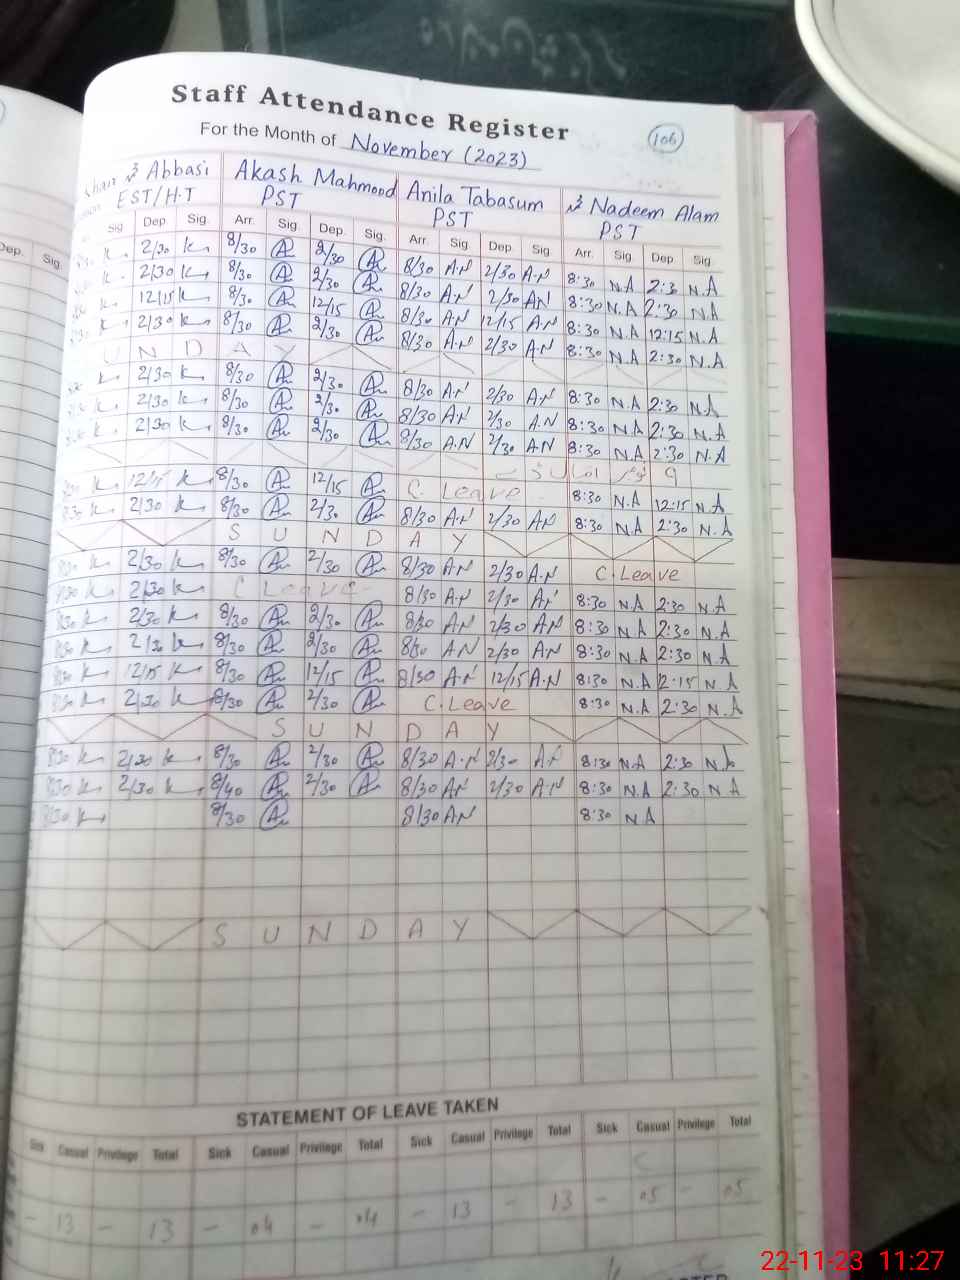 Staff Attendance Register
106
For the Month of November (2023)
Abbasi Akash Mahmood Anila Tabasum Nadeem Alam
EST/H.T PST PST PST
Sig Dep Sig. Arr. Sig Dep. Sig. Arr. Sig Dep. Sig Arr. Sig Dep. Sig.
Dep. Sig.
2/30 8/30 2/30 8/30 A.N 2/30 A.N 8:30 N.A 2:30 N.A
2/30 8/30 2/30 8/30 A.N 2/30 AN 8:30 N.A 2:30 N.A
12/15 8/30 12/15 8/30 AN 12/15 A.N 8:30 N.A 12:15 N.A
2/30 8/30 2/30 8/30 A.N 2/30 A.N 8:30 N.A 2:30 N.A
U N D A Y
2/30 8/30 2/30 8/30 A.N 2/30 A.N 8:30 N.A 2:30 N.A
2/30 8/30 2/30 8/30 A.N 2/30 A.N 8:30 N.A 2:30 N.A
2/30 8/30 2/30 8/30 A.N 2/30 AN 8:30 N.A 2:30 N.A
12/15 8/30 12/15 C. Leave 8:30 N.A 12:15 N.A
8:30 2/30 8/30 2/30 8/30 A.N 2/30 AN 8:30 N.A 2:30 N.A
S U N D A Y
8:30 2/30 8/30 2/30 8/30 AN 2/30 A.N C.Leave
8:30 2/30 C Leave 8/30 A.N 2/30 A.N 8:30 N.A 2:30 N.A
8:30 2/30 8/30 2/30 8/30 AN 2/30 AN 8:30 N.A 2:30 N.A
8:30 2/30 8/30 2/30 8/30 AN 2/30 AN 8:30 N.A 2:30 N.A
8:30 12/15 8/30 12/15 8/30 A.N 12/15 A.N 8:30 N.A 2:15 N.A
8:30 2/30 8/30 2/30 C.Leave 8:30 N.A 2:30 N.A
S U N D A Y
8:30 2/30 8/30 2/30 8/30 A.N 2/30 AN 8:30 N.A 2:30 N.A
8:30 2/30 8/40 2/30 8/30 AN 2/30 A.N 8:30 N.A 2:30 N.A
8/30 8/30 8/30 AN 8:30 N.A
S U N D A Y
STATEMENT OF LEAVE TAKEN
Sick Casual Privilege Total Sick Casual Privilege Total Sick Casual Privilege Total Sick Casual Privilege Total
- 13 - 13 - 04 - 04 - 13 - 13 - 05 - 05
22-11-23 11:27